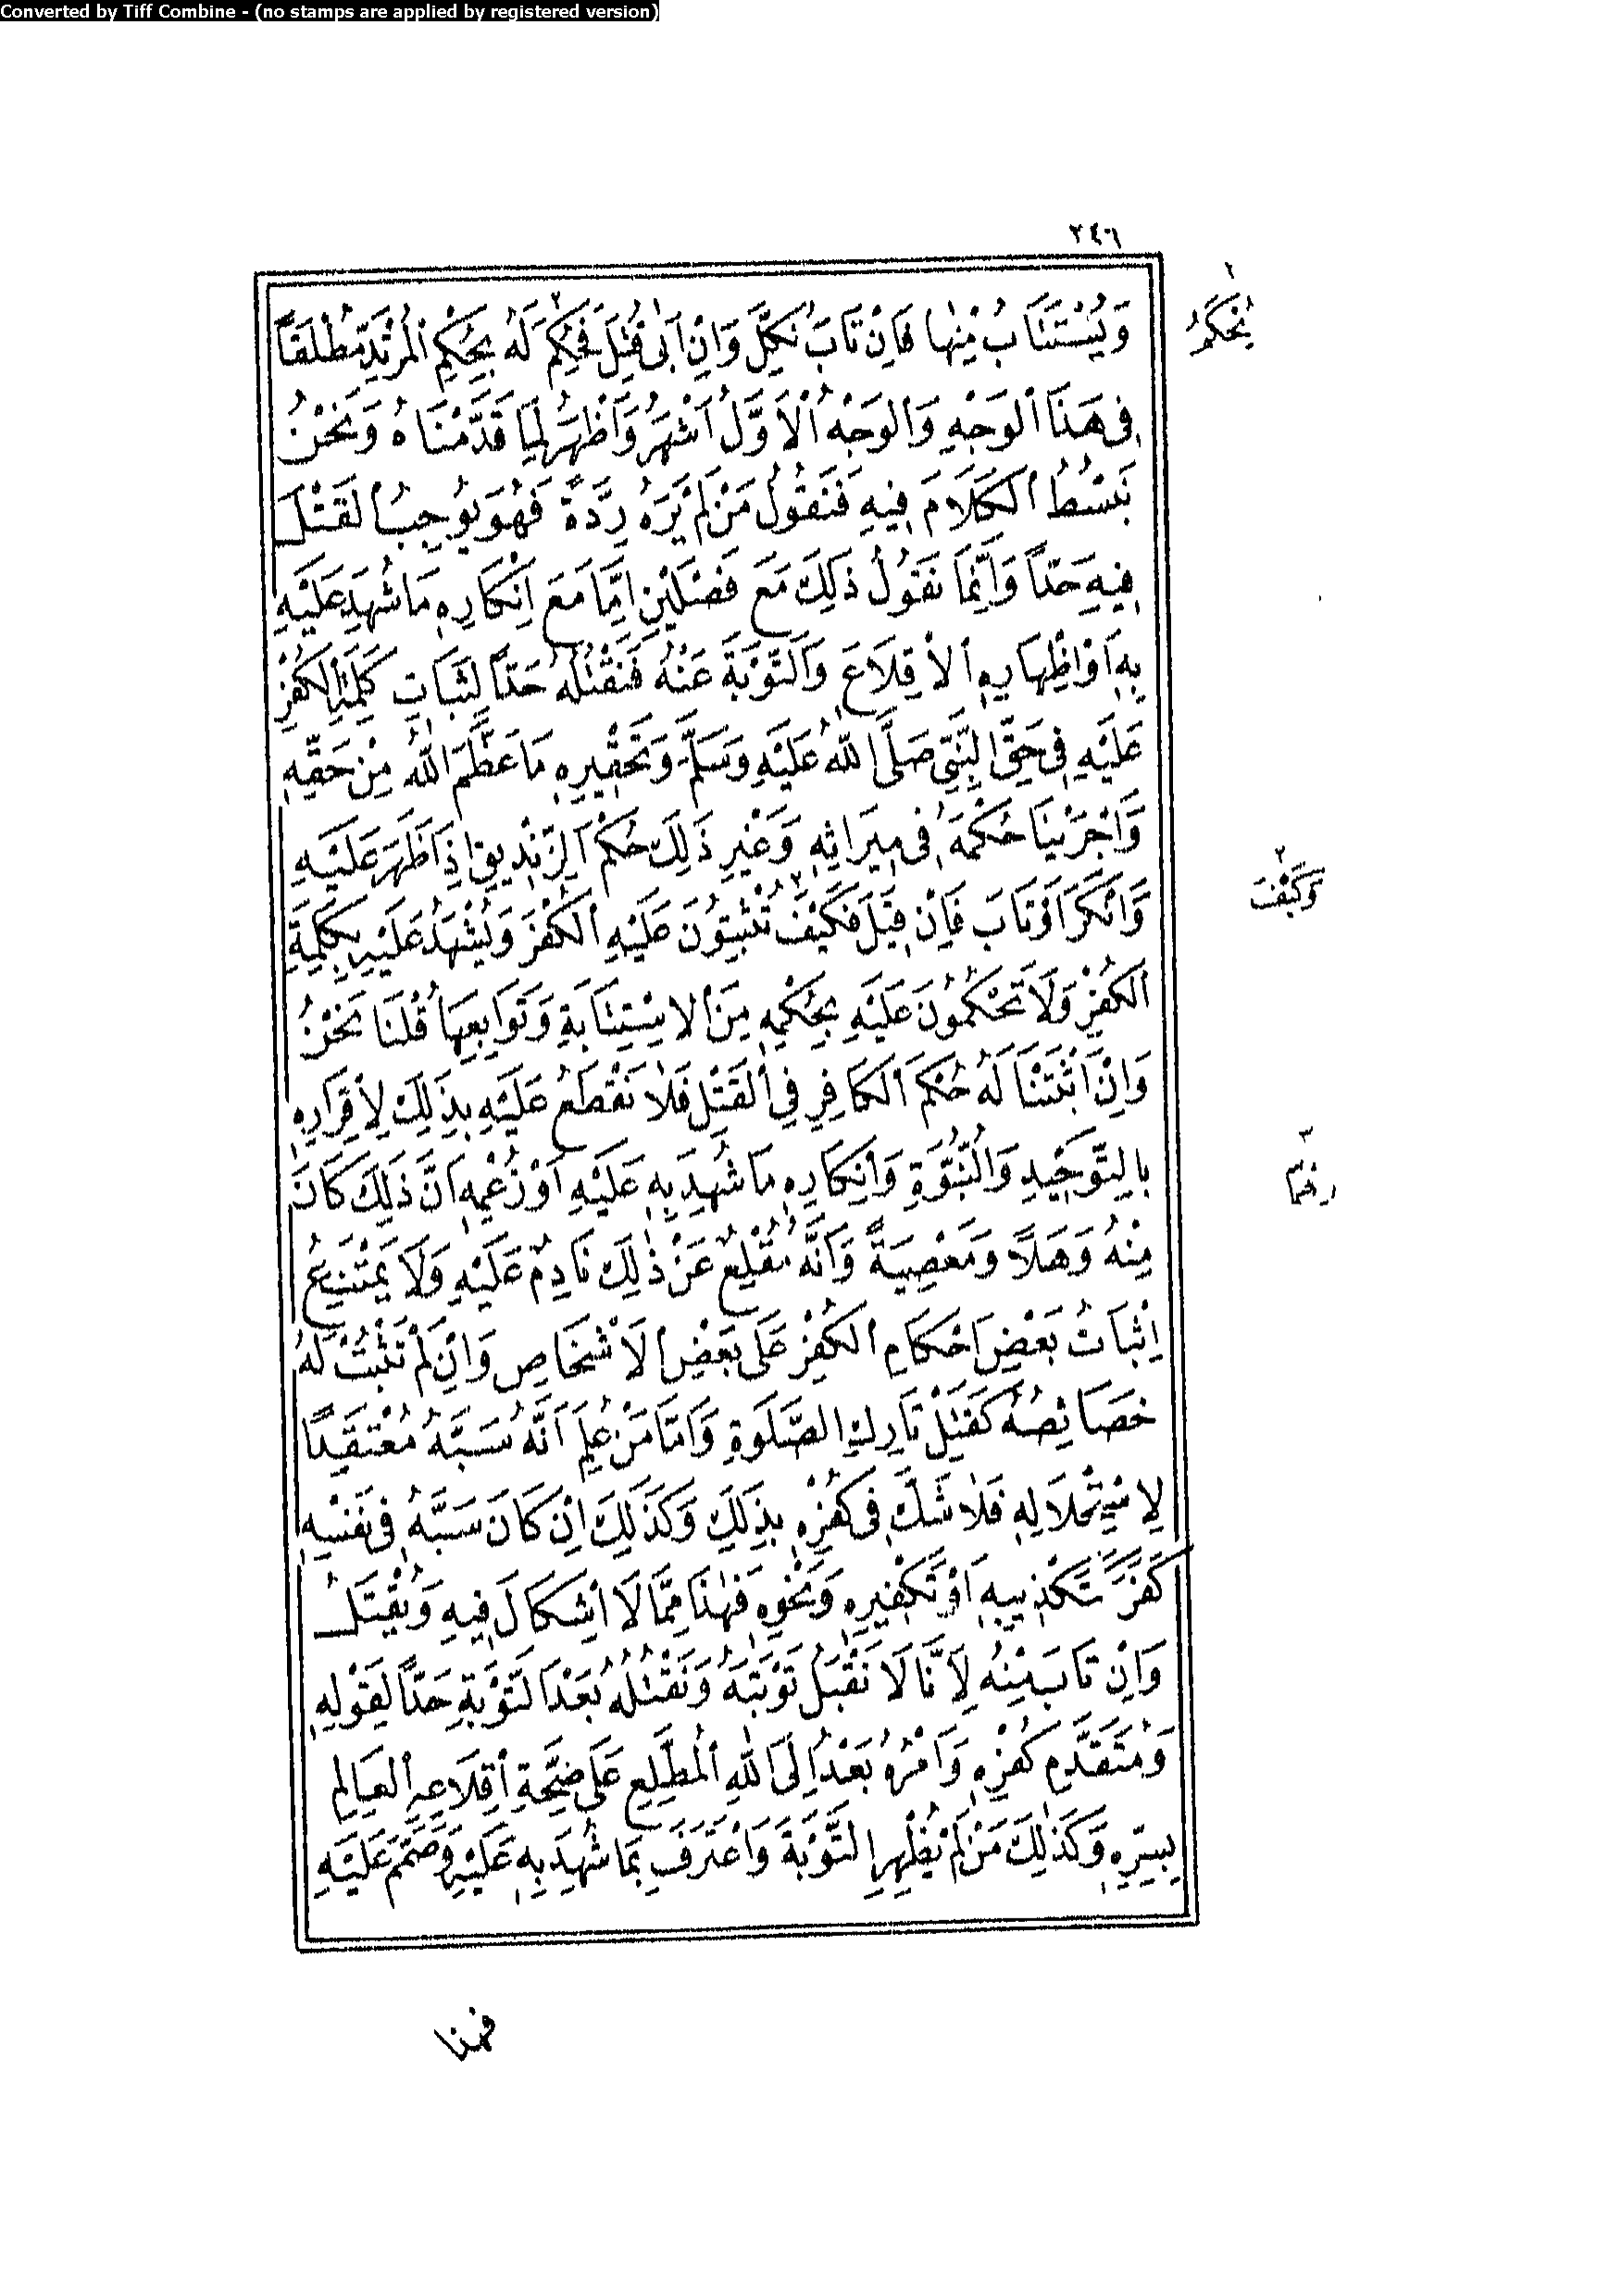 Converted by Tiff Combine - (no stamps are applied by registered version)
٢٤٦
وَيُسْتَتَابُ مِنْهَا فَاِنْ تَابَ نُكِّلَ وَاِنْ اَبٰى قُتِلَ فَحُكِمَ٢ لَهُ بِحُكْمِ الْمُرْتَدِّ مُطْلَقًا
١ يُحْكَمُ
فِى هَذَا الْوَجْهِ وَالْوَجْهُ الْاَوَّلُ اَشْهَرُ وَاَظْهَرُ لِمَا قَدَّمْنَاهُ وَنَحْنُ
نَبْسُطُ الْكَلَامَ فِيهِ فَنَقُولُ مَنْ لَمْ يَرَهُ رِدَّةً فَهُوَ يُوجِبُ الْقَتْلَ
فِيهِ حَدًّا وَاِنَّمَا نَقُولُ ذَلِكَ مَعَ فَصْلَيْنِ اِمَّا مَعَ اِنْكَارِهِ مَا شُهِدَ عَلَيْهِ
بِهِ اَوْ اِظْهَارِهِ الْاِقْلَاعَ وَالتَّوْبَةَ عَنْهُ فَنَقْتُلُهُ حَدًّا لِثَبَاتِ كَلِمَةِ الْكُفْرِ
عَلَيْهِ فِى حَقِّ النَّبِىِّ صَلَّى اللّٰهُ عَلَيْهِ وَسَلَّمَ وَتَحْقِيرِهِ مَا عَظَّمَ اللّٰهُ مِنْ حَقِّهِ
وَاَجْرَيْنَا حُكْمَهُ فِى مِيرَاثِهِ وَغَيْرِ ذَلِكَ حُكْمَ الزِّنْدِيقِ اِذَا ظَهَرَ عَلَيْهِ
وَاَنْكَرَ اَوْ تَابَ فَاِنْ قِيلَ فَكَيْفَ٢ تُثْبِتُونَ عَلَيْهِ الْكُفْرَ وَيُشْهَدُ عَلَيْهِ بِكَلِمَةِ
٢ وَكَيْفَ
الْكُفْرِ وَلَا تَحْكُمُونَ عَلَيْهِ بِحُكْمِهِ مِنَ الْاِسْتِتَابَةِ وَتَوَابِعِهَا قُلْنَا نَحْنُ
وَاِنْ اَثْبَتْنَا لَهُ حُكْمَ الْكَافِرِ فِى الْقَتْلِ فَلَا نَقْطَعُ عَلَيْهِ بِذَلِكَ لِاِقْرَارِهِ
بِالتَّوْحِيدِ وَالنُّبُوَّةِ وَاِنْكَارِهِ مَا شُهِدَ بِهِ عَلَيْهِ اَوْ زَعْمِهِ اَنَّ ذَلِكَ كَانَ
مِنْهُ وَهَلًا وَمَعْصِيَةً وَاَنَّهُ مُقْلِعٌ عَنْ ذٰلِكَ نَادِمٌ عَلَيْهِ وَلَا يَمْتَنِعُ
اِثْبَاتُ بَعْضِ اَحْكَامِ الْكُفْرِ عَلَى بَعْضِ الْاَشْخَاصِ وَاِنْ لَمْ تَثْبُتْ لَهُ
خَصَائِصُهُ كَقَتْلِ تَارِكِ الصَّلَوةِ وَاَمَّا مَنْ عُلِمَ اَنَّهُ سَبَّهُ مُعْتَقِدًا
لِاِسْتِحْلَالِهِ فَلَا شَكَّ فِى كُفْرِهِ بِذَلِكَ وَكَذَلِكَ اِنْ كَانَ سَبُّهُ فِى نَفْسِهِ
كُفْرًا كَتَكْذِيبِهِ اَوْ تَكْفِيرِهِ وَنَحْوِهِ فَهٰذَا مِمَّا لَا اِشْكَالَ فِيهِ وَيُقْتَلُ
وَاِنْ تَابَ مِنْهُ لِاَنَّا لَا نَقْبَلُ تَوْبَتَهُ وَنَقْتُلُهُ بَعْدَ التَّوْبَةِ حَدًّا لِقَوْلِهِ
وَمُتَقَدِّمِ كُفْرِهِ وَاَمْرُهُ بَعْدُ اِلَى اللّٰهِ الْمُطَّلِعِ عَلَى صِحَّةِ اِقْلَاعِهِ الْعَالِمِ
بِسِرِّهِ وَكَذٰلِكَ مَنْ لَمْ يُظْهِرِ التَّوْبَةَ وَاعْتَرَفَ بِمَا شُهِدَ بِهِ عَلَيْهِ وَصَمَّمَ عَلَيْهِ
فهذا